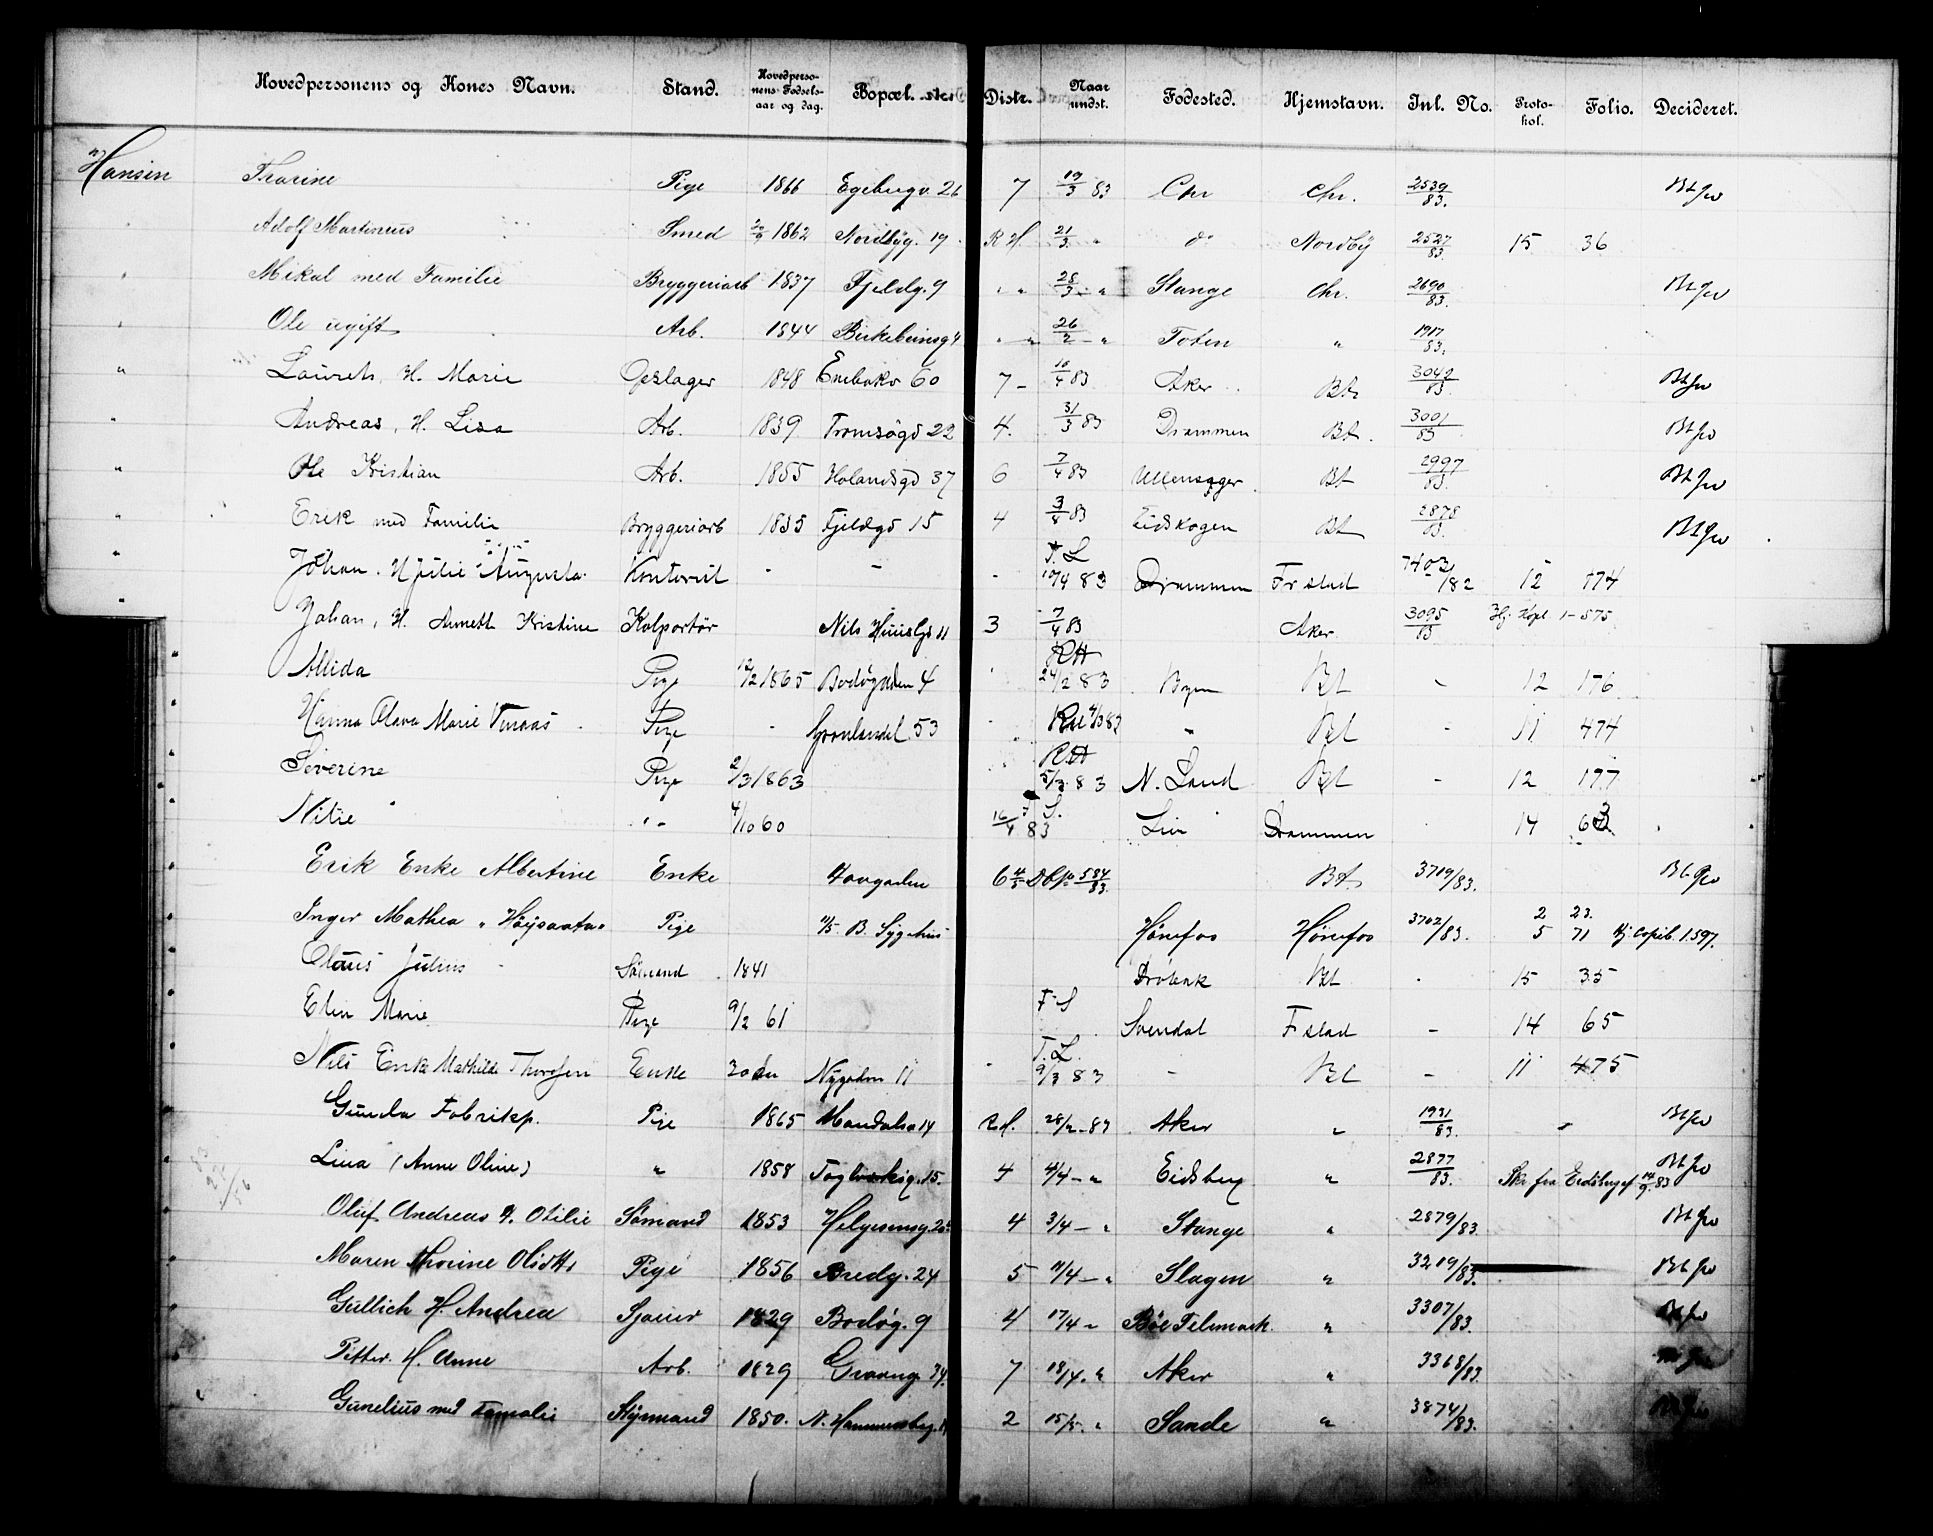 Hovedpersonens og Kones Navn. Stand. Hovedpersonens Fødselsaar og dag. Bopæl. Distr. Naar undst. Fødested. Hjemstavn. Inl. No. Protokol. Folio. Decideret.
Hansen Thorine Pige 1866 Egebergv. 26 7 19/3 83 Chr Chr. 2539/83. Bt
" Adolf Martinius Smed 1862 Nordbyg. 19 R H. 21/3 " do Nordby 2527/83. 15 36
" Mikal med Familie Bryggeriarb 1837 Fjeldg. 9 " " 28/3 - " Stange Chr. 2690/83. Bt
" Ole ugift Arb. 1844 Birkebeinsg 4 " - " 26/2 - " Toten " 1917/83.
" Laurets, H. Marie Oeslager 1848 Enebakv 60 7 - 10/4 83 Aker Bt 3042/83 Bt
" Andreas, H. Lisa Arb. 1839 Tromsøgd 22 4. 31/3 83 Drammen Bt. 3001/83 Bt
" Ole Kristian Arb. 1855 Holandsgd 37 6 7/4 83 Ullensager Bt 2997/83. Bt
" Erik med Familie Bryggeriarb 1835 Fjeldgd 15 4 3/4 83 Eidskogen Bt 2878/83. Bt
" Johan. H Julie Augusta. Kontorist - - - T. L 10/4 83 Drammen Fr stad 7402/182 12 174
" Johan, H. Annett Kristine Kolportør Nils Huusgd 11 3 7/4 83 Aker 3095/83 Hj. Kopi 1-575
" Allida Pige 12/2 1865 Bodøgaden 4 " RH 24/2 83 Byen Bt - 12 176
" Hanna Olava Marie Pige - Grønlandsl 53 - Bt - 11 474
" Severine Pige 2/3 1863 RH 5/3 83 N. Land Bt - 12 177
" Nilie " - 4/10 60 16/4 83 Lier Drammen 14 63
" Erik Enke Albertine Enke Hovgaden 6 534/83. Bt 3719/83. Bt
" Inger Mathea Pige B. Sygehus Hønefos Hønefos 3702/83. 2 23. 5 71 Hj. Copib. 1.597.
" Olaus Julius - Sømand 1841 Drøbak Bt 15 35
" Elin Marie Pige 9/2 61 F S Svendal F stad - 14 65
" Nils Enke Mathilde Thorsen Enke Nygaden 11 " T. L. 9/3 83 - Bt - 11 475
" Gunda Fabrikp. Pige 1865 Mandalsg 14 R H. 28/2 - 83 Aker " 1931/83. Bt
" Lina (Anne Oline) " 1858 Teglverksg. 15. 4 4/4 - " Eidsberg " 2877/83. Skr fra Eidsberg af 14/9. 83 Bt
" Oluf Andreas H. Otilie Sømand 1853 Helgesensg. 4 3/4 - " Stange " 2879/83. Bt
" Maren Thorine Pige 1856 Bredg. 24 5 11/4 - " Slagen " 3219/83. Bt
" Gullich H. Andrea Sjauer 1829 Bodøg. 9 4 17/4 - Bøe Telemark. " 3307/83. Bt
" Petter. H. Anne Arb. 1829 7 18/4. " Aker " 3368/83.
" Gunelius med Familie Styrmand 1850. N. Hammersborg. 2 15/5. " Sande " 3874/83.